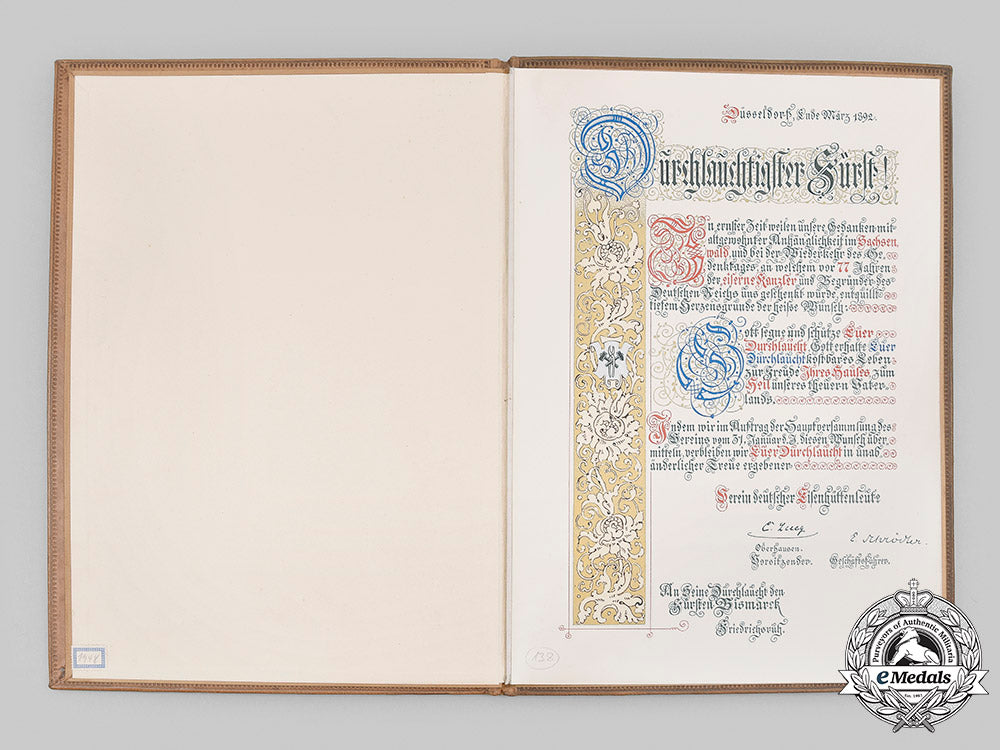 Düsseldorf, Ende März 1892.
Durchlauchtigster Fürst!
In ernster Zeit weilen unsere Gedanken mit
altgewohnter Anhänglichkeit im Sachsen
wald, und bei der Wiederkehr des Ge-
denktages, an welchem vor 77 Jahren
der eiserne Kanzler und Begründer des
Deutschen Reichs uns geschenkt wurde, entquillt
tiefem Herzensgrunde der heisse Wunsch:
Gott segne und schütze Euer
Durchlaucht, Gott erhalte Euer
Durchlaucht kostbares Leben
zur Freude Ihres Hauses, zum
Heil unseres theuern Vater-
lands.
Indem wir im Auftrag der Hauptversammlung des
Vereins vom 31. Januar d. J. diesen Wunsch über
mitteln, verbleiben wir Euer Durchlaucht in unab
änderlicher Treue ergebener
Verein deutscher Eisenhüttenleute
C. Lueg
E. Schrödter.
Oberhausen.
Vorsitzender.
Geschäftsführer.
An Seine Durchlaucht den
Fürsten Bismarck
Friedrichsruh.
1948
138
Purveyors of Authentic Militaria
eMedals
Est. 1967